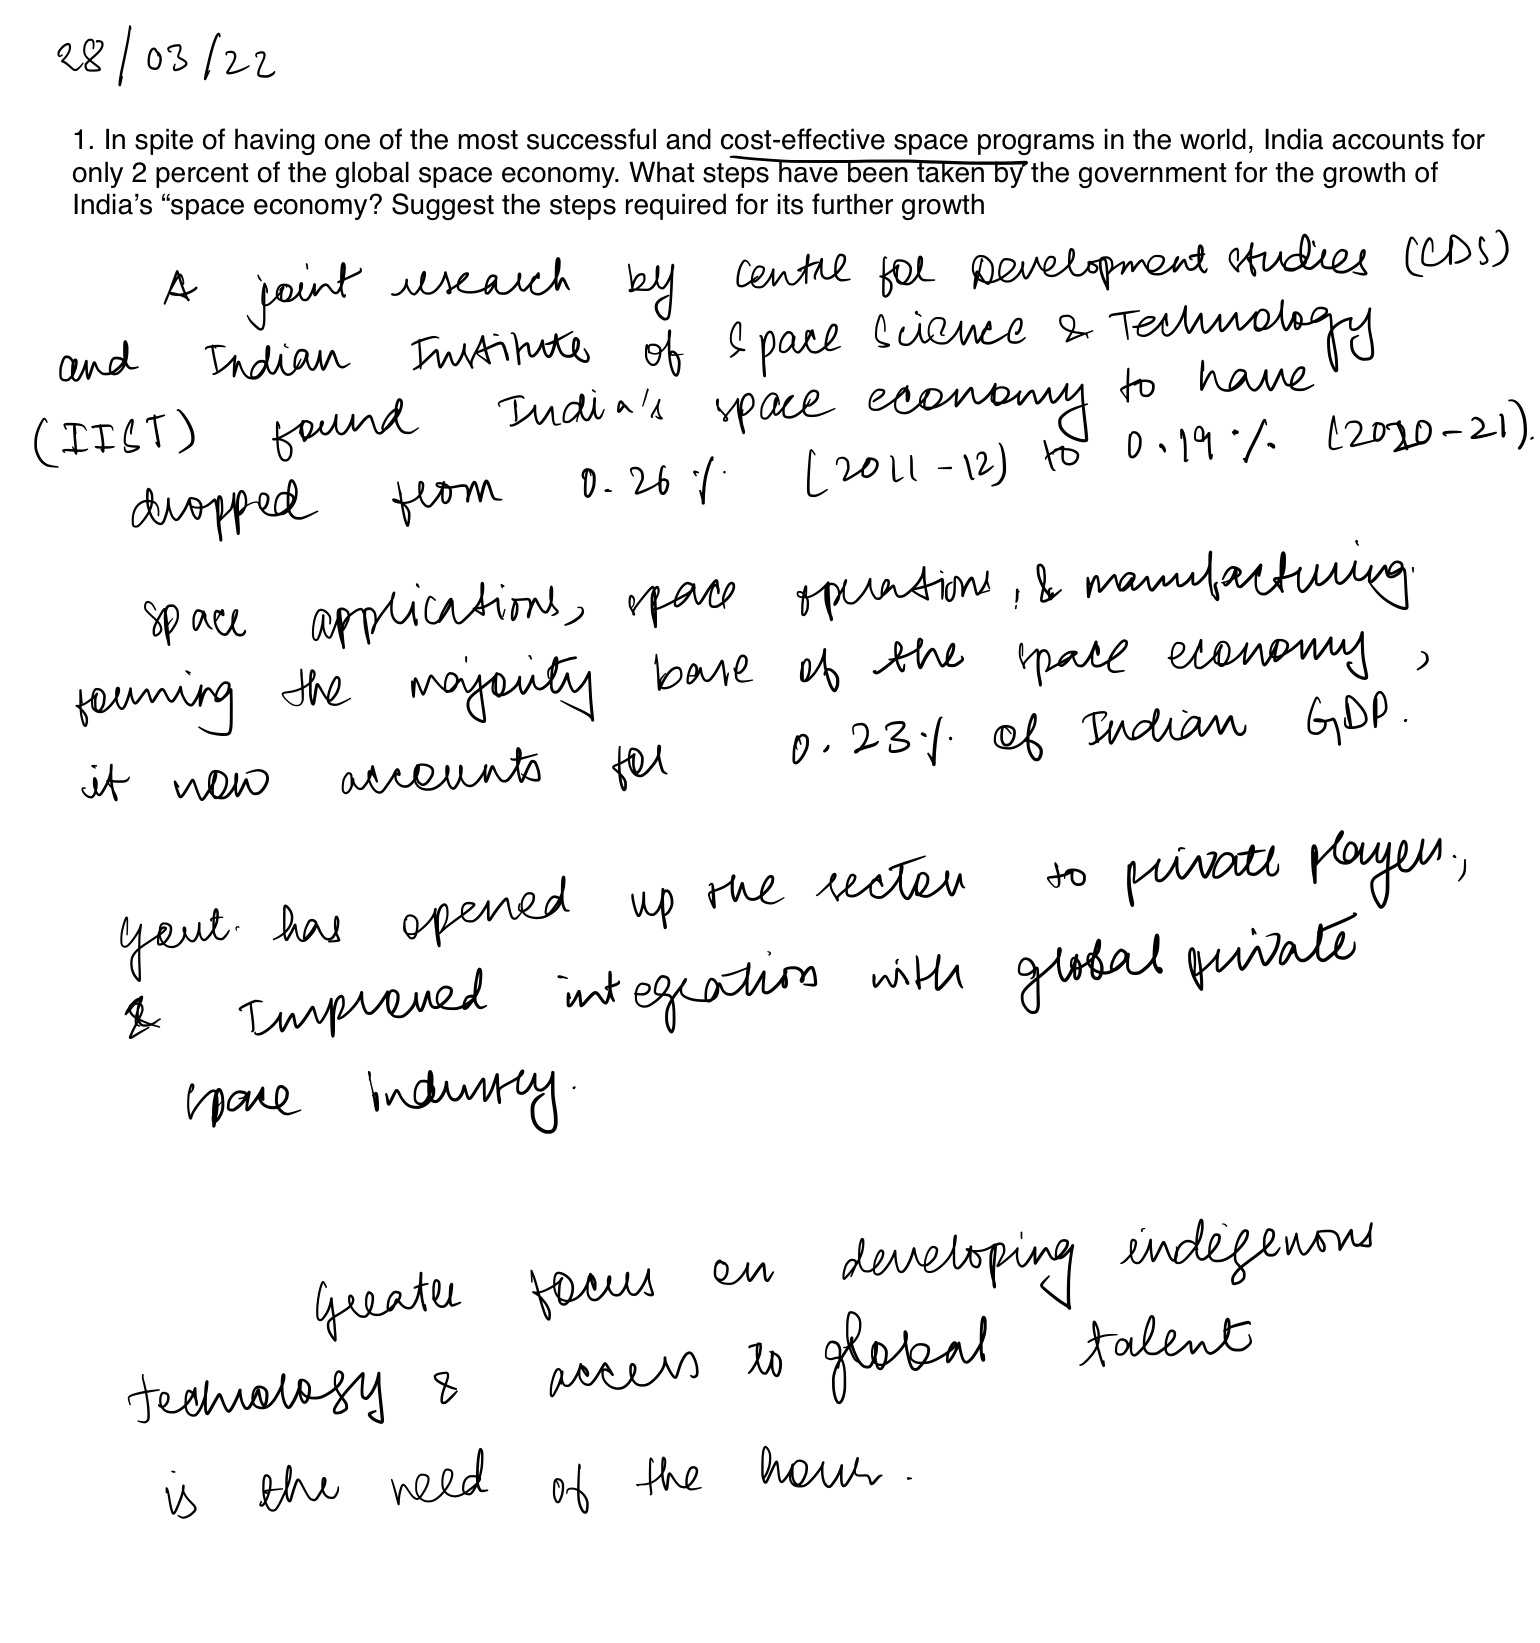 28/03/22
1. In spite of having one of the most successful and cost-effective space programs in the world, India accounts for
only 2 percent of the global space economy. What steps have been taken by the government for the growth of
India's “space economy? Suggest the steps required for its further growth
A joint research by Centre for Development Studies (CDS)
and Indian Institute of Space Science & Technology
(IIST) found India's space economy to have
dropped from 0.26% (2011-12) to 0.19% (2020-21).
Space applications, space operations, & manufacturing
forming the majority base of the space economy,
it now accounts for 0.23% of Indian GDP.
Govt. has opened up the sector to private players,
& Improved integration with global private
space industry.
Greater focus on developing indegenous
technology & access to global talent
is the need of the hour.